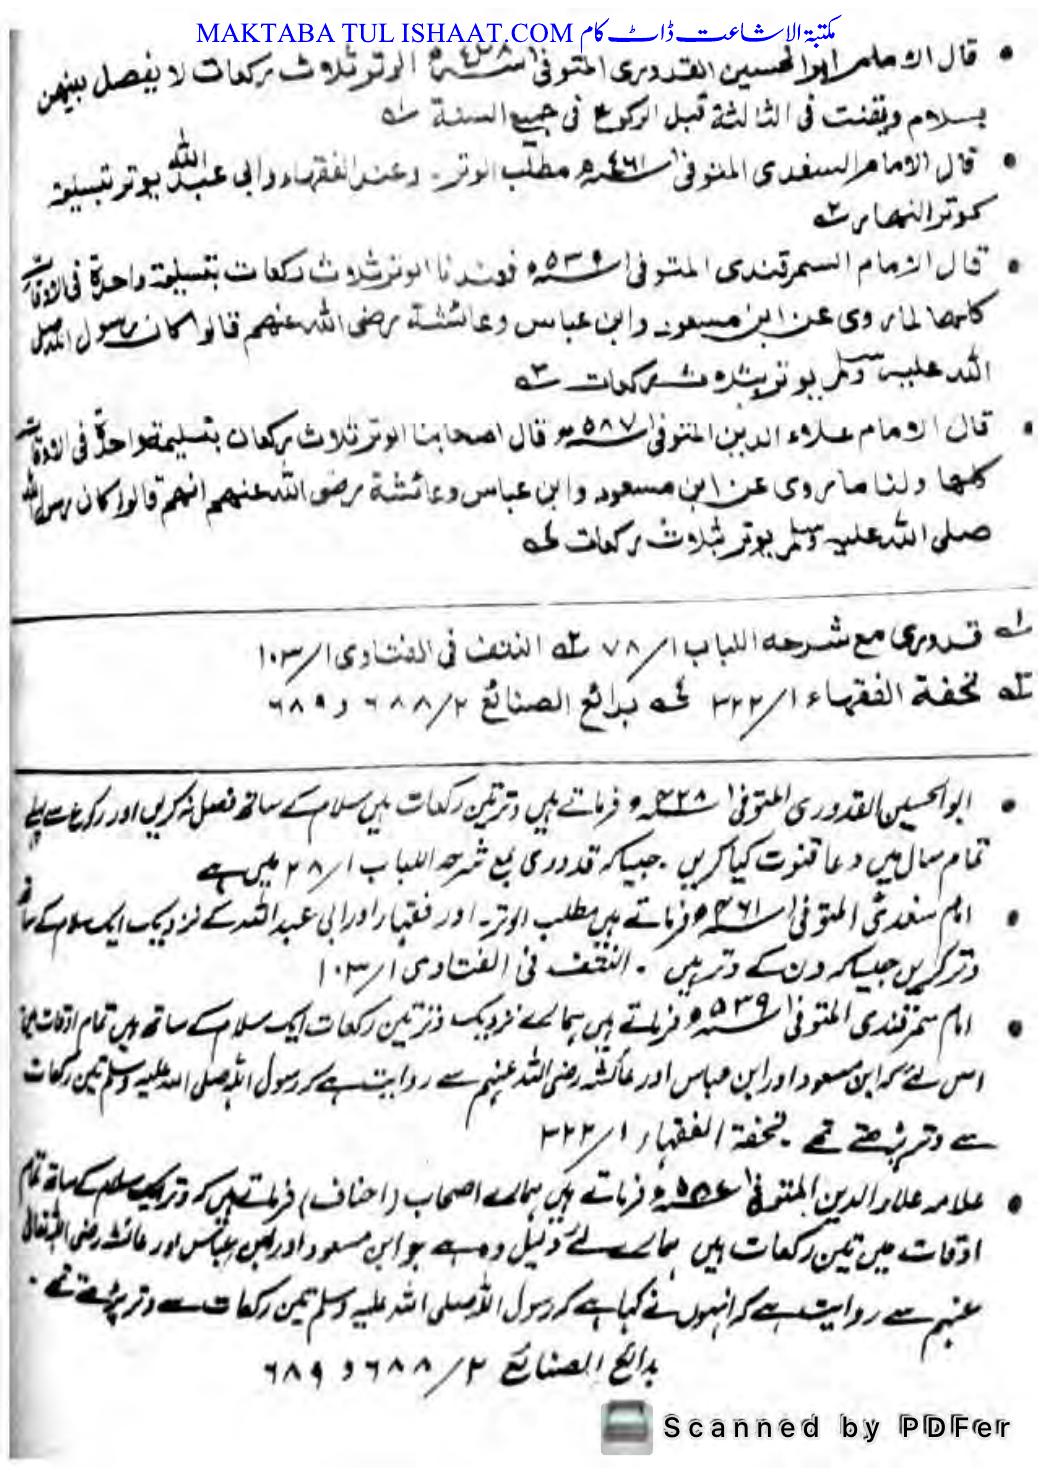 MAKTABA TUL ISHAAT.COM مكتبة الاشاعت ڈاٹ كام
• قال الامام ابو الحسین القدوری المتوفی ۴۲۸ھ الوتر ثلاث رکعات لا یفصل بینهن
بسلام ویقنت فی الثالثة قبل الرکوع فی جمیع السنة ۱ه
• قال الامام السغدی المتوفی ۴۶۱ھ مطلب الوتر۔ وعند الفقهاء وابی عبد الله یوتر بتسلیمة
کوتر النهار ۲ه
• قال الامام السمرقندی المتوفی ۵۳۹ھ فعندنا الوتر ثلاث رکعات بتسلیمة واحدة فی الاوقات
کلها لما روی عن ابن مسعود وابن عباس وعائشة رضی الله عنهم قالوا کان رسول الله صلی
الله علیه وسلم یوتر بثلاث رکعات ۳ه
• قال الامام علاء الدین المتوفی ۵۸۷ھ قال اصحابنا الوتر ثلاث رکعات بتسلیمة واحدة فی الاوقات
کلها ولنا ما روی عن ابن مسعود وابن عباس وعائشة رضی الله عنهم انهم قالوا کان رسول الله
صلی الله علیه وسلم یوتر بثلاث رکعات ۴ه
۱ه قدوری مع شرحه اللباب ۱/۷۸ ۲ه النتف فی الفتاوی ۱/۱۰۳
۳ه تحفة الفقهاء ۱/۳۲۲ ۴ه بدائع الصنائع ۲/۶۸۸ و ۶۸۹
• ابو الحسین القدوری المتوفی ھ فرماتے ہیں وتر تین رکعات ہیں سلام کے ساتھ فصل نہ کریں اور رکوع سے پہلے
تمام سال میں دعا قنوت کیا کریں۔ جیسا کہ قدوری مع شرحہ اللباب ۱/ میں ہے
• امام سغدی المتوفی ۴۶۱ھ فرماتے ہیں مطلب الوتر۔ اور فقہاء اور ابی عبد اللہ کے نزدیک ایک سلام کے ساتھ
وتر کریں جیسا کہ دن کے وتر ہیں۔ النتف فی الفتاوی ۱/۱۰۳
• امام سمرقندی المتوفی ۵۳۹ھ فرماتے ہیں ہمارے نزدیک وتر تین رکعات ایک سلام کے ساتھ ہیں تمام اوقات میں
اس لئے کہ ابن مسعود اور ابن عباس اور عائشہ رضی اللہ عنہم سے روایت ہے کہ رسول اللہ صلی اللہ علیہ وسلم تین رکعات
سے وتر پڑھتے تھے۔ تحفة الفقہاء ۱/۳۲۲
• علامہ علاء الدین المتوفی ھ فرماتے ہیں ہمارے اصحاب (احناف) فرماتے ہیں کہ وتر ایک سلام کے ساتھ تمام
اوقات میں تین رکعات ہیں ہمارے لئے دلیل وہ ہے جو ابن مسعود اور ابن عباس اور عائشہ رضی اللہ تعالیٰ
عنہم سے روایت ہے کہ انہوں نے کہا ہے کہ رسول اللہ صلی اللہ علیہ وسلم تین رکعات سے وتر پڑھتے تھے۔
بدائع الصنائع ۲/۶۸۸ و ۶۸۹
Scanned by PDFer